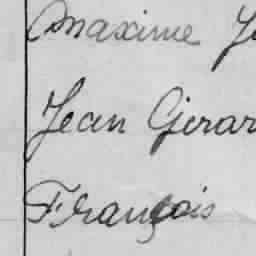 Maxime
Jean Gérar
François